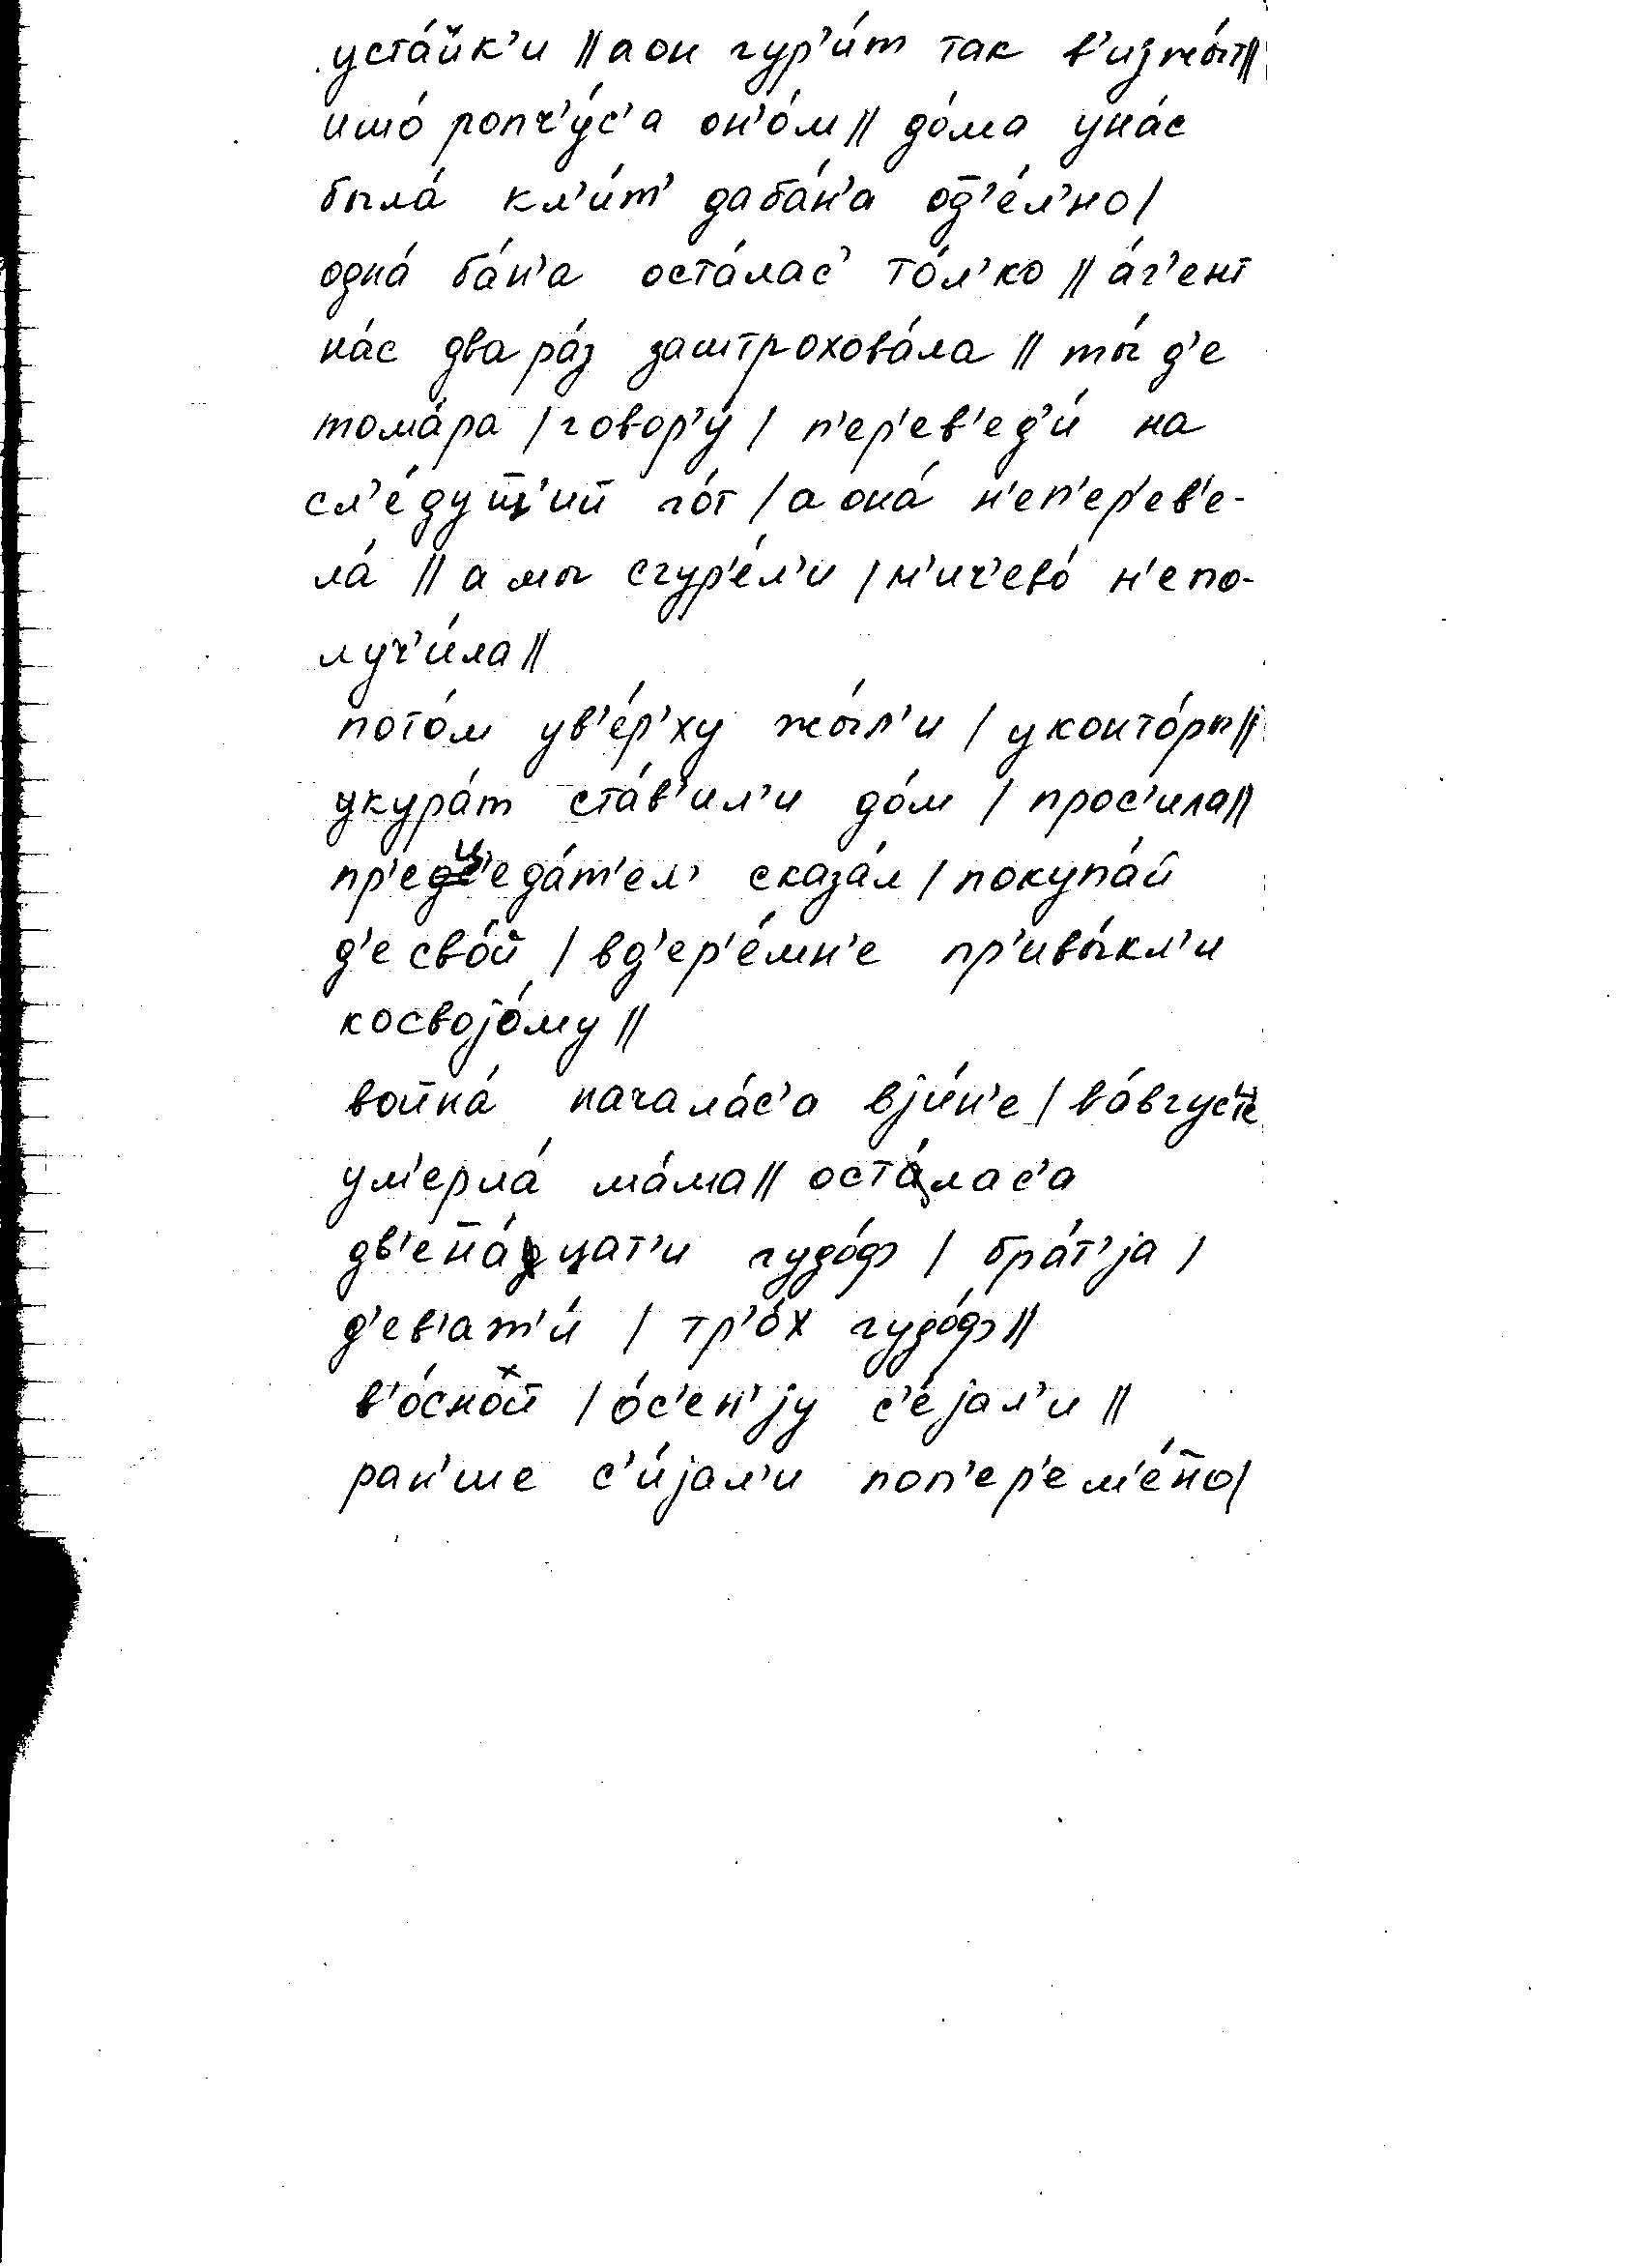 уста́йк'и || а он гур'и́т так в'изжы́т ||
ишо́ ропч'у́с'а он'о́м || до́ма уна́с
была́ кл'и́т' даба́н'а од̄'е́л'но |
одна́ ба́н'а оста́лас' то́л'ко || а́г'ент
на́с два ра́з заштрохова́ла || ты́ д'е
тома́ра | говор'у́ | п'ер'ев'ед'и́ на
сл'е́дущ̄'ий го́т | а она́ н'еп'ер'ев'е-
ла́ || а мы сгур'е́л'и | н'ич'ево́ н'епо-
луч'и́ла ||
пото́м ув'е́р'ху жы́л'и | уконто́ры ||
укура́т ста́в'ил'и до́м | прос'и́ла ||
пр'ец'еда́т'ел' сказа́л | покупа́й
д'е сво́й | вд'ер'е́мн'е пр'ивы́кл'и
косвојо́му ||
война́ начала́с'а вји́н'е | ва́вгус'т'е
ум'ерла́ ма́ма || оста́лас'а
дв'ен̄а́цат'и гудо́ф | бра́т'ја |
д'ев'ат'и́ | тр'о́х гудо́ф ||
в'о́сной | о́с'ен'ју с'е́јал'и ||
ран'ше с'и́јал'и поп'ер'ем'е́н̄о |